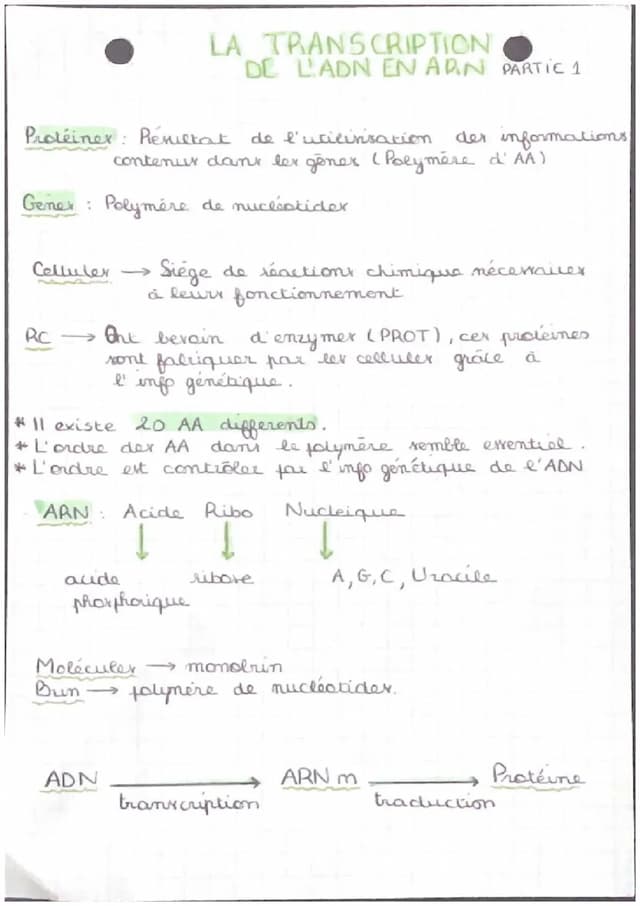 LA TRANSCRIPTION
DE L'ADN EN ARN PARTIE 1
Protéines : Résultat de l'utilinisation des informations
contenus dans les gênes (Polymère d'AA)
Gènes : Polymère de nucléotides
Cellules → Siège de réactions chimique nécessaires
à leurs fonctionnement
RC → Ont besoin d'enzymes (PROT), ces protéines
sont fabriquer par les cellules grâce à
l'info génétique.
* Il existe 20 AA differents.
* L'ordre des AA dans le polymère semble essentiel.
* L'ordre est contrôler par l'info génétique de l'ADN
ARN : Acide Ribo Nucleique
↓ ↓ ↓
acide ribose A, G, C, Uracile
phosphorique
Molécules → monobrin
Brin → polymère de nucléotides.
ADN → ARN m → Protéine
transcription traduction